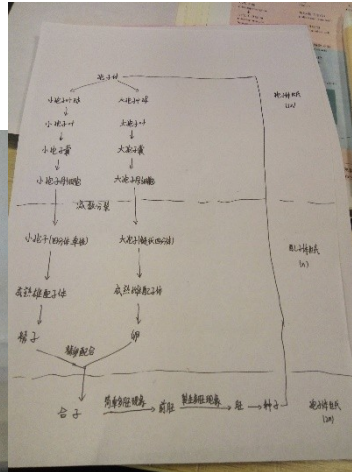 孢子体
小孢子叶球 大孢子叶球
小孢子叶 大孢子叶
小孢子囊 大孢子囊
小孢子母细胞 大孢子母细胞
减数分裂
小孢子(四分体,单核) 大孢子(链状四分体)
成熟雄配子体 成熟雌配子体
精子 卵
精卵配合
合子 简单多胚现象 前胚 裂生多胚现象 胚 种子
孢子体世代
(2n)
配子体世代
(n)
孢子体世代
(2n)